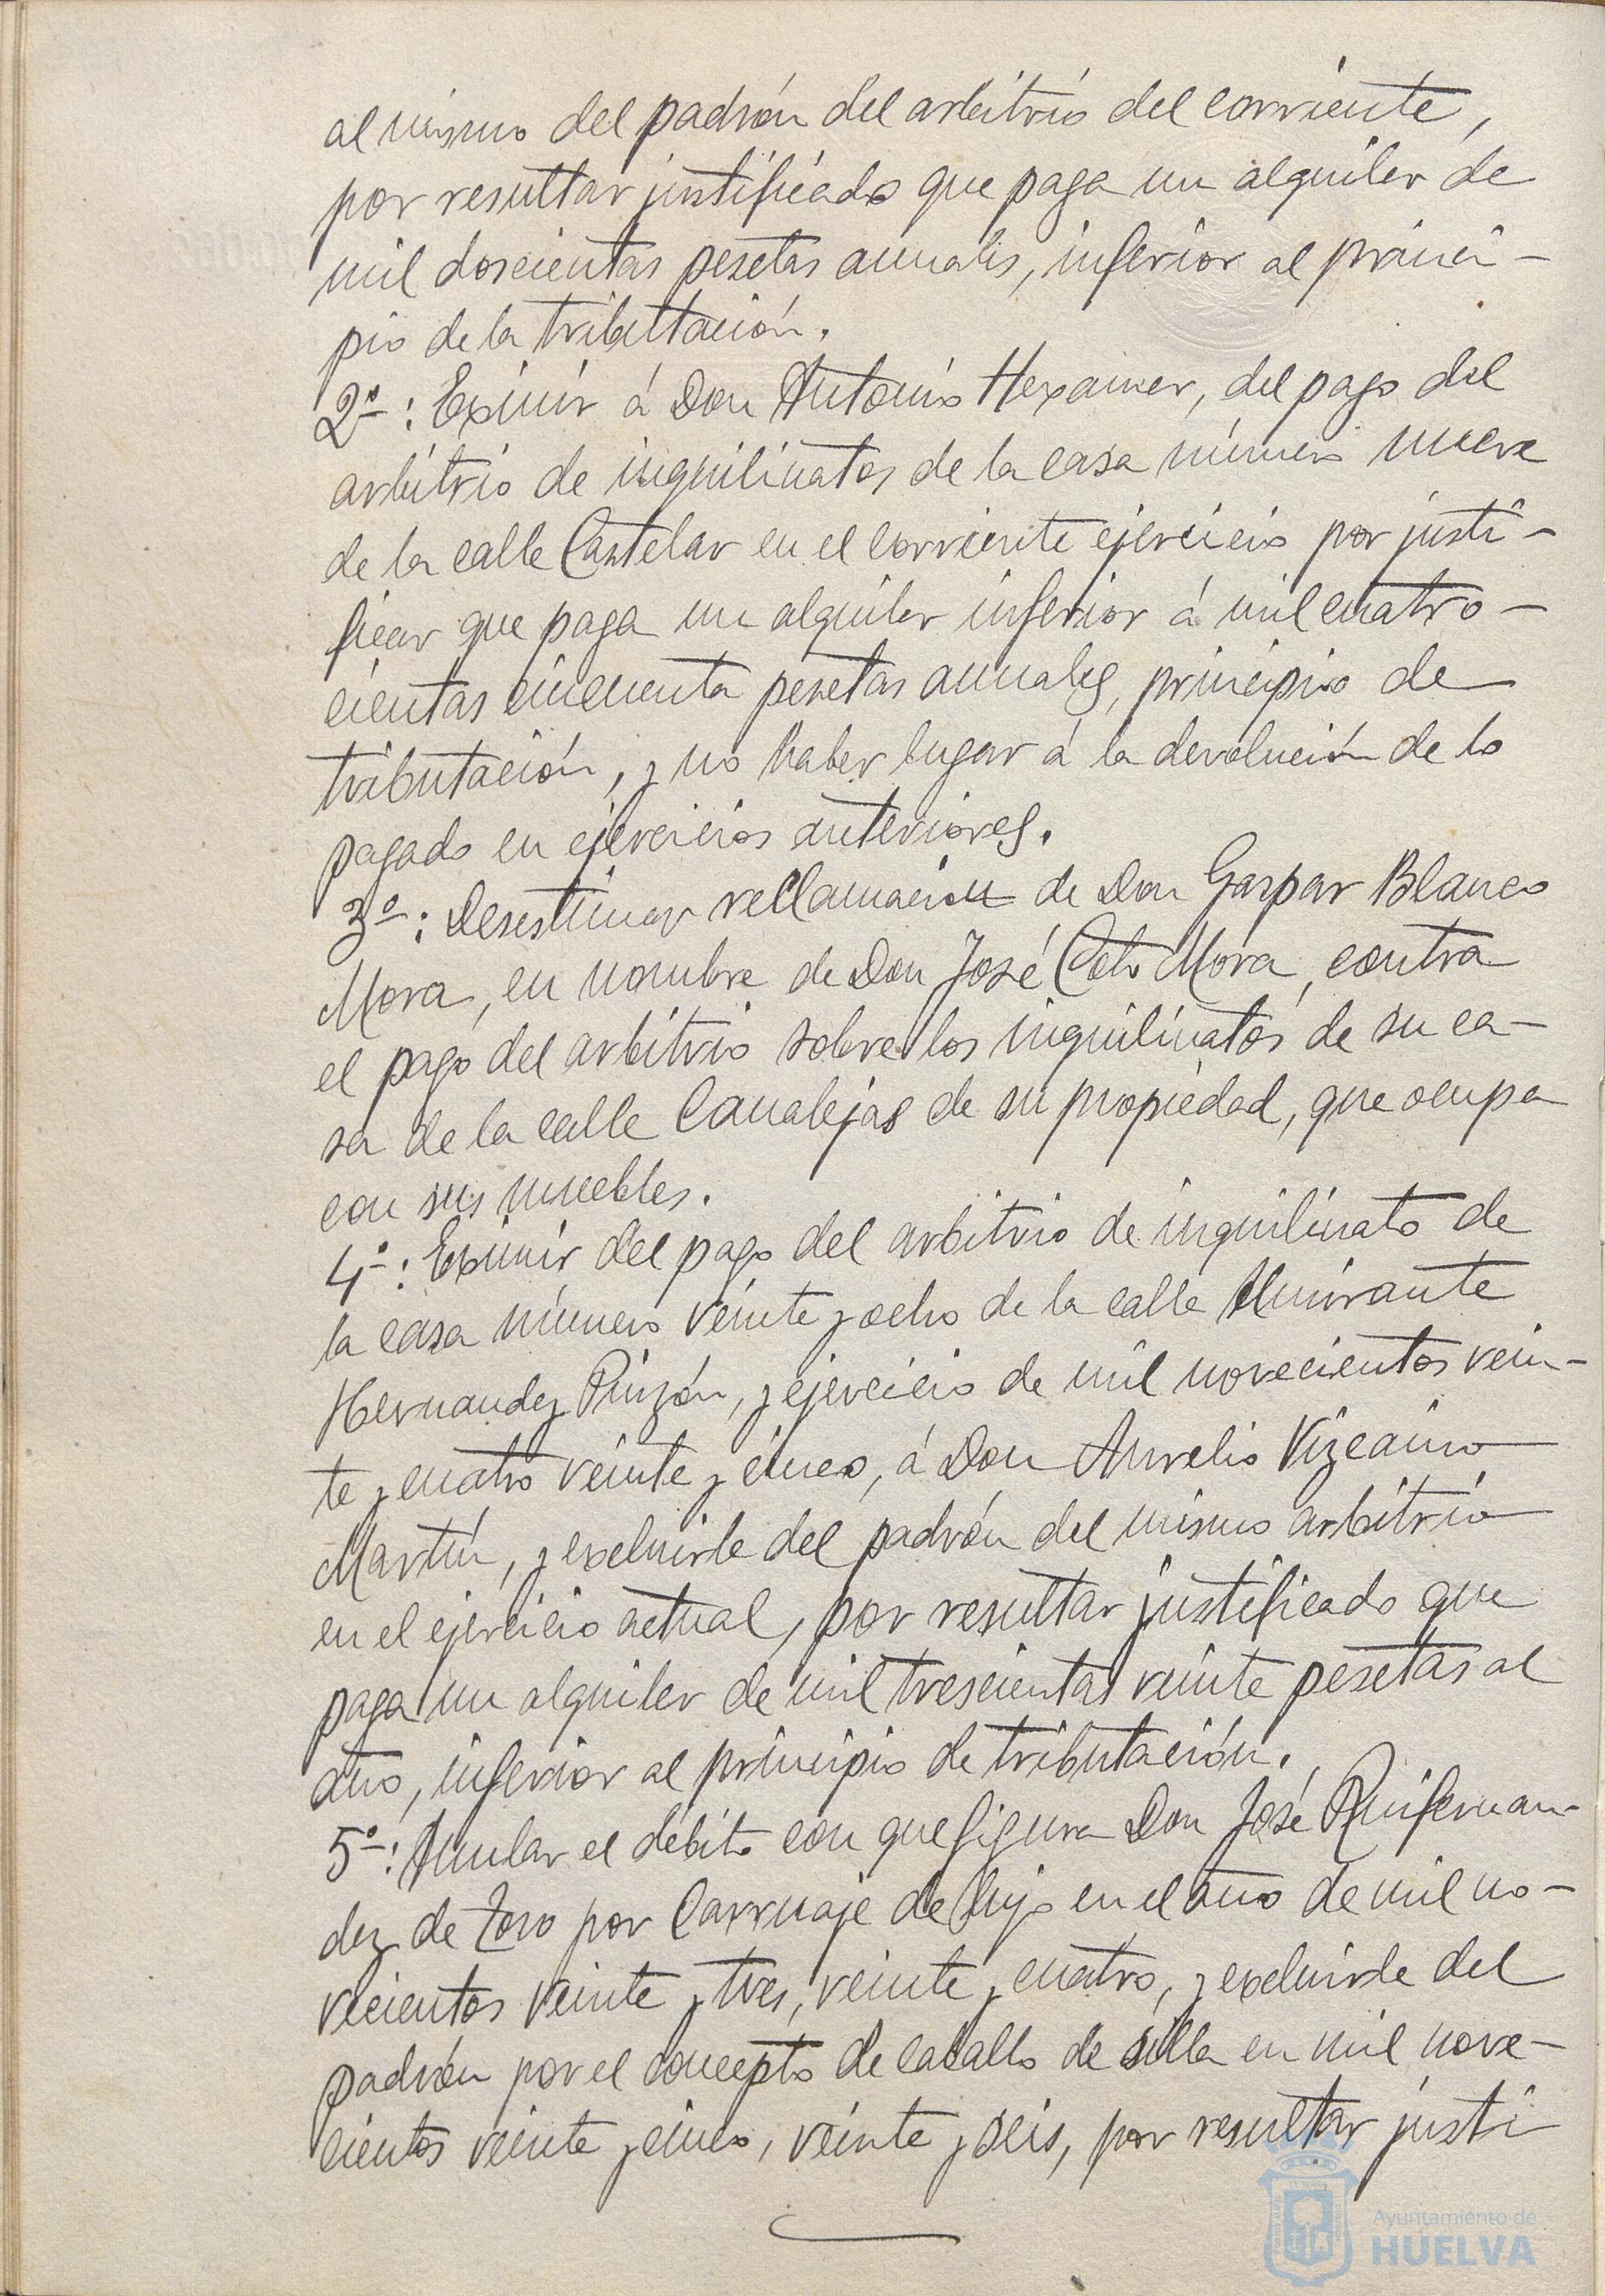 al mismo del padrón del arbitrio del corriente,
por resultar justificado que paga un alquiler de
mil doscientas pesetas anuales, inferior al princi-
pio de la tributtación.
2º: Eximir á Don Antonio Hexaimer, del pago del
arbitrio de inquilinatos de la casa número nueve
de la calle Castelar en el corriente ejercicio por justi-
ficar que paga un alquiler inferior á mil cuatro-
cientas cincuenta pesetas anuales, principio de
tributación, y no haber lugar á la devolución de lo
pagado en ejercicios anteriores.
3º: Desestimar reclamación de Don Gaspar Blanco
Mora, en nombre de Don José Mora, contra
el pago del arbitrio sobre los inquilinatos de su ca-
sa de la calle Canalejas de su propiedad, que ocupa
con sus muebles.
4º: Eximir del pago del arbitrio de inquilinato de
la casa número veinte y ocho de la calle Almirante
Hernandez Pinzón, y ejercicio de mil novecientos vein-
te y cuatro veinte y cinco, á Don Aurelio Vizcaino
Martín, y excluirle del padrón del mismo arbitrio
en el ejercicio actual, por resultar justificado que
paga un alquiler de mil trescientas veinte pesetas al
año, inferior al principio de tributación.
5º: Anular el débito con que figura Don José Ruifernan-
dez de Toro por Carruaje de lujo en el año de mil no-
vecientos veinte y tres, veinte y cuatro, y excluirle del
padrón por el concepto de caballo de silla en mil nove-
cientos veinte y cinco, veinte y seis, por resultar justi
Ayuntamiento de
HUELVA